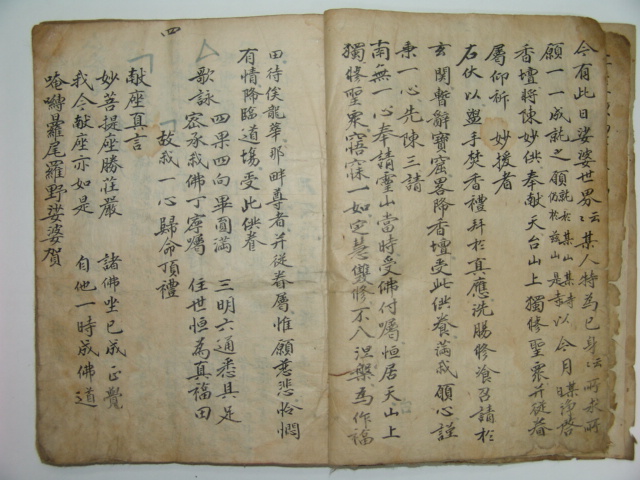 今有此日娑婆世界云云某人特為己身云云所求所
願一一成就之願就於某山某寺仍於該山是寺以今月某日淨啓
香壇將陳妙供奉献天台山上獨修聖衆幷從眷
屬仰祈妙援者
右伏以爇手焚香禮拜於真應洗腸修飡召請於
玄関暫辭寶窟畧降香壇受此供養滿我願心謹
秉一心先陳三請
南無一心奉請靈山當時受佛付囑恒居天山上
獨修聖衆寤寐一如定慧雙修不入涅槃為作福
田待俟龍華那畔尊者幷從眷屬惟願慈悲怜憫
有情降臨道場受此供養
歌詠 四果四向早圓滿 三明六通悉具足
密承我佛丁寧囑 住世恒為真福田
四 故我一心歸命頂禮
献座真言
妙菩提座勝莊嚴 諸佛坐已成正覺
我今献座亦如是 自他一時成佛道
唵嚩曩羅尾羅野娑婆賀